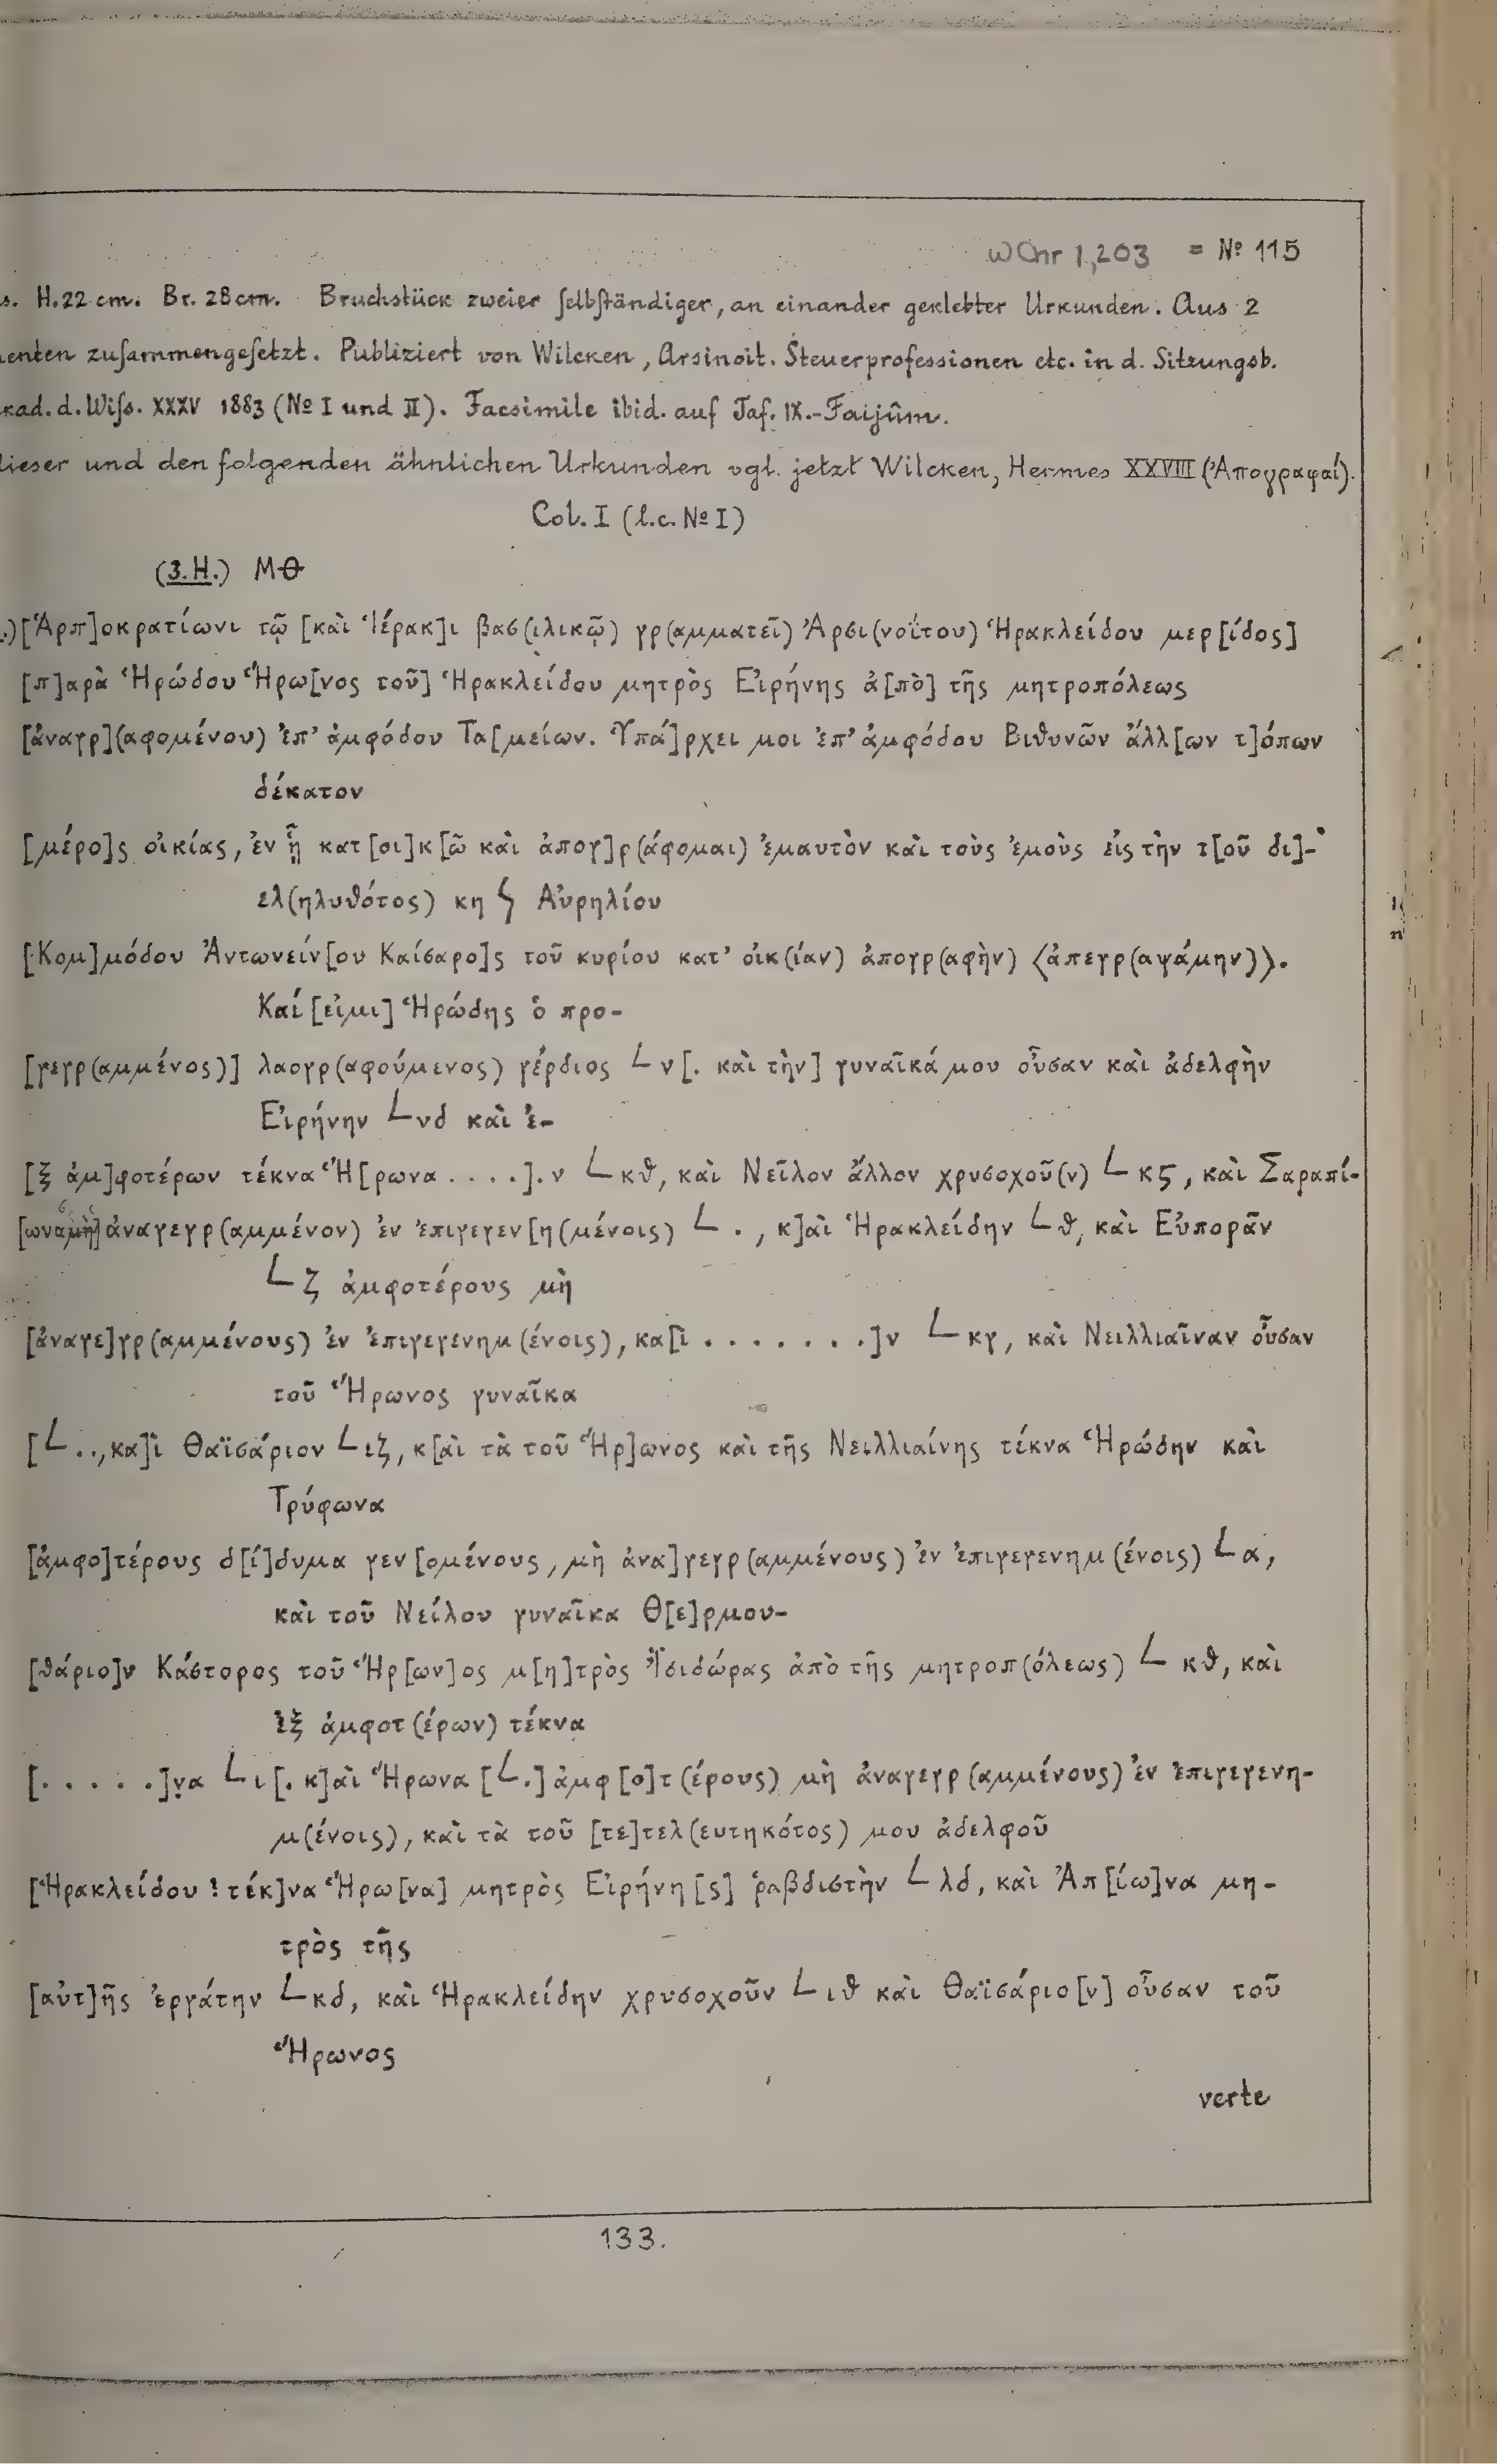 WChr 1,203 = № 115
s. H. 22 cm. Br. 28 cm. Bruchstück zweier ſelbſtändiger, an einander geklebter Urkunden. Aus 2
enten zuſammengeſetzt. Publiziert von Wilcken, Arsinoit. Steuerprofessionen etc. in d. Sitzungsb.
kad. d. Wiſs. XXXV 1883 (№ I und II). Facsimile ibid. auf Taf. IX. - Faijûm.
dieser und den folgenden ähnlichen Urkunden vgl. jetzt Wilcken, Hermes XXVIII (Ἀπογραφαί).
Col. I (l.c. № I)
(3.H.) ΜΘ
.)[Ἁρπ]οκρατίωνι τῷ [καὶ Ἱέρακ]ι βασ(ιλικῷ) γρ(αμματεῖ) Ἀρσι(νοΐτου) Ἡρακλείδου μερ[ίδος]
[π]αρὰ Ἡρώδου Ἥρω[νος τοῦ] Ἡρακλείδου μητρὸς Εἰρήνης ἀ[πὸ] τῆς μητροπόλεως
[ἀναγρ](αφομένου) ἐπ' ἀμφόδου Τα[μείων. Ὑπά]ρχει μοι ἐπ' ἀμφόδου Βιθυνῶν ἄλλ[ων τ]όπων
δέκατον
[μέρο]ς οἰκίας, ἐν ᾗ κατ[οι]κ[ῶ καὶ ἀπογ]ρ(άφομαι) ἐμαυτὸν καὶ τοὺς ἐμοὺς εἰς τὴν τ[οῦ δι]-
ελ(ηλυθότος) κη ϛ Αὐρηλίου
[Κομ]μόδου Ἀντωνείν[ου Καίσαρο]ς τοῦ κυρίου κατ' οἰκ(ίαν) ἀπογρ(αφὴν) ⟨ἀπεγρ(αψάμην)⟩.
Καί [εἰμι] Ἡρώδης ὁ προ-
[γεγρ(αμμένος)] λαογρ(αφούμενος) γέρδιος 𐅹 ν[. καὶ τὴν] γυναῖκά μου οὖσαν καὶ ἀδελφὴν
Εἰρήνην 𐅹 νδ καὶ ἐ-
[ξ ἀμ]φοτέρων τέκνα Ἥ[ρωνα . . . .]. ν 𐅹 κθ, καὶ Νεῖλον ἄλλον χρυσοχοῦ(ν) 𐅹 κϛ, καὶ Σαραπί-
[ωνα μὴ] ἀναγεγρ(αμμένον) ἐν ἐπιγεγεν[η(μένοις) 𐅹 . , κ]αὶ Ἡρακλείδην 𐅹 θ, καὶ Εὐπορᾶν
𐅹 ζ ἀμφοτέρους μὴ
[ἀναγε]γρ(αμμένους) ἐν ἐπιγεγενημ(ένοις), κα[ὶ . . . . . . .]ν 𐅹 κγ, καὶ Νειλλιαῖναν οὖσαν
τοῦ Ἥρωνος γυναῖκα
[𐅹 . ., κα]ὶ Θαϊσάριον 𐅹 ιζ, κ[αὶ τὰ τοῦ Ἥρ]ωνος καὶ τῆς Νειλλιαίνης τέκνα Ἡρώδην καὶ
Τρύφωνα
[ἀμφο]τέρους δ[ί]δυμα γεν[ομένους, μὴ ἀνα]γεγρ(αμμένους) ἐν ἐπιγεγενημ(ένοις) 𐅹 α,
καὶ τοῦ Νείλου γυναῖκα Θ[ε]ρμου-
[θάριο]ν Κάστορος τοῦ Ἥρ[ων]ος μ[η]τρὸς Ἰσιδώρας ἀπὸ τῆς μητροπ(όλεως) 𐅹 κθ, καὶ
ἐξ ἀμφοτ(έρων) τέκνα
[. . . . .]ν̣α 𐅹 ι[. κ]αὶ Ἥρωνα [𐅹 .] ἀμφ[ο]τ(έρους) μὴ ἀναγεγρ(αμμένους) ἐν ἐπιγεγενη-
μ(ένοις), καὶ τὰ τοῦ [τε]τελ(ευτηκότος) μου ἀδελφοῦ
[Ἡρακλείδου ? τέκ]να Ἥρω[να] μητρὸς Εἰρήνη[ς] ῥαβδιστὴν 𐅹 λδ, καὶ Ἀπ[ίω]να μη-
τρὸς τῆς
[αὐτ]ῆς ἐργάτην 𐅹 κδ, καὶ Ἡρακλείδην χρυσοχοῦν 𐅹 ιθ καὶ Θαϊσάριο[ν] οὖσαν τοῦ
Ἥρωνος
verte
133.